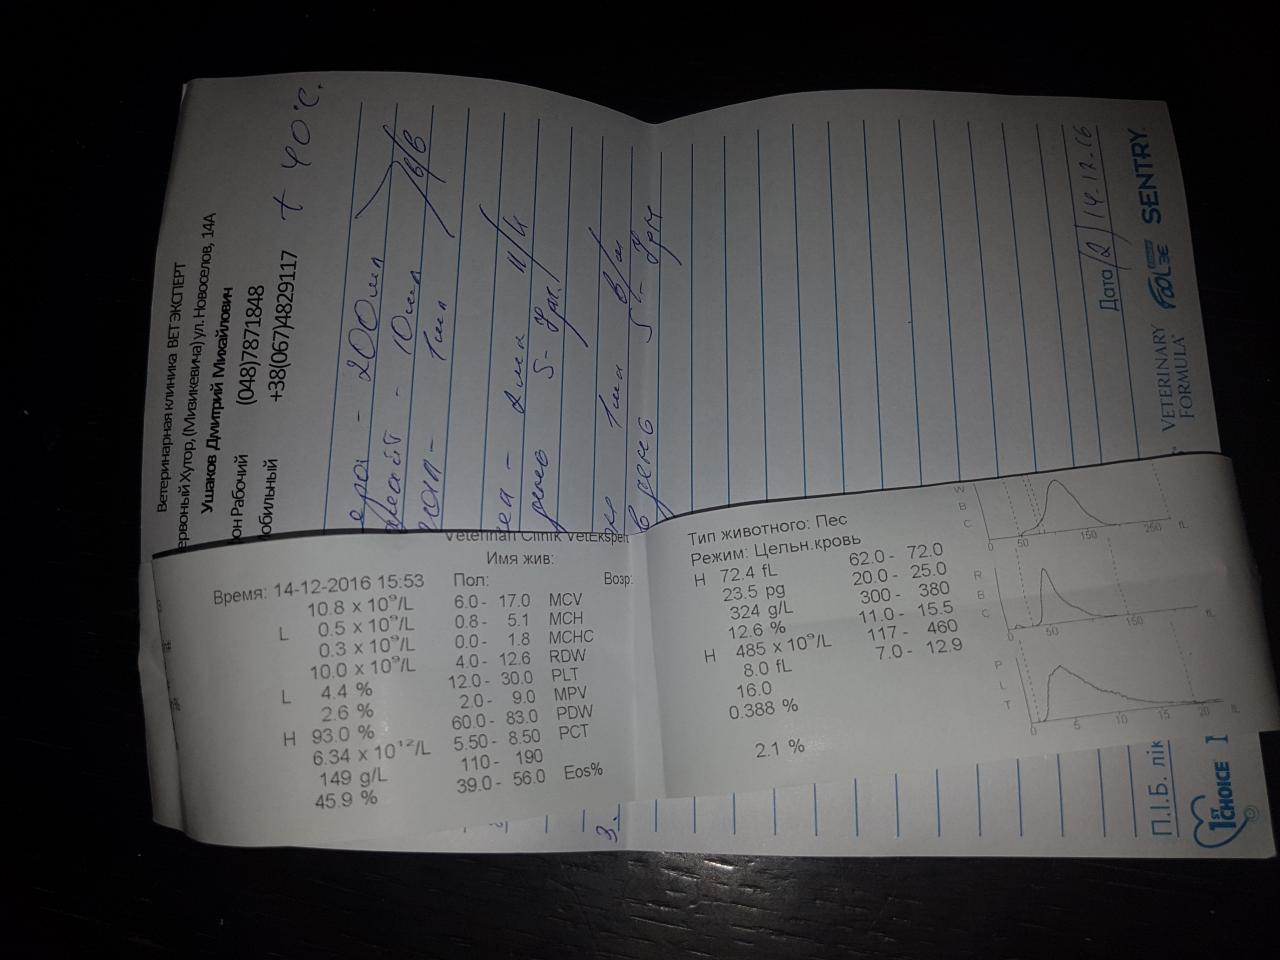 Ветеринарная клиника ВЕТ ЭКСПЕРТ
ервоный Хутор, (Мизикевича) ул. Новоселов, 14А
Ушаков Дмитрий Михайлович
он Рабочий (048)7871848
обильный +38(067)4829117
t 40°C.
- 200мл
- 10мл в/в
- 1мл
- 2мл п/к
день 5-
1мл в/м
день 5-
3.
Дата 14.12.16
П.І.Б. лік
1ST CHOICE
VETERINARY FORMULA
SENTRY
Veterinari Clinik VetEkspert
Имя жив:
Время: 14-12-2016 15:53 Пол: Возр:
10.8 x 10⁹/L 6.0 - 17.0
L 0.5 x 10⁹/L 0.8 - 5.1
0.3 x 10⁹/L 0.0 - 1.8
10.0 x 10⁹/L 4.0 - 12.6
L 4.4 % 12.0 - 30.0
2.6 % 2.0 - 9.0
H 93.0 % 60.0 - 83.0
6.34 x 10¹²/L 5.50 - 8.50
149 g/L 110 - 190
45.9 % 39.0 - 56.0
Тип животного: Пес
Режим: Цельн.кровь
MCV H 72.4 fL 62.0 - 72.0
MCH 23.5 pg 20.0 - 25.0
MCHC 324 g/L 300 - 380
RDW 12.6 % 11.0 - 15.5
PLT H 485 x 10⁹/L 117 - 460
MPV 8.0 fL 7.0 - 12.9
PDW 16.0
PCT 0.388 %
Eos% 2.1 %
WBC
0 50 150 250 fL
RBC
0 50 150 fL
PLT
0 5 10 15 20 fL